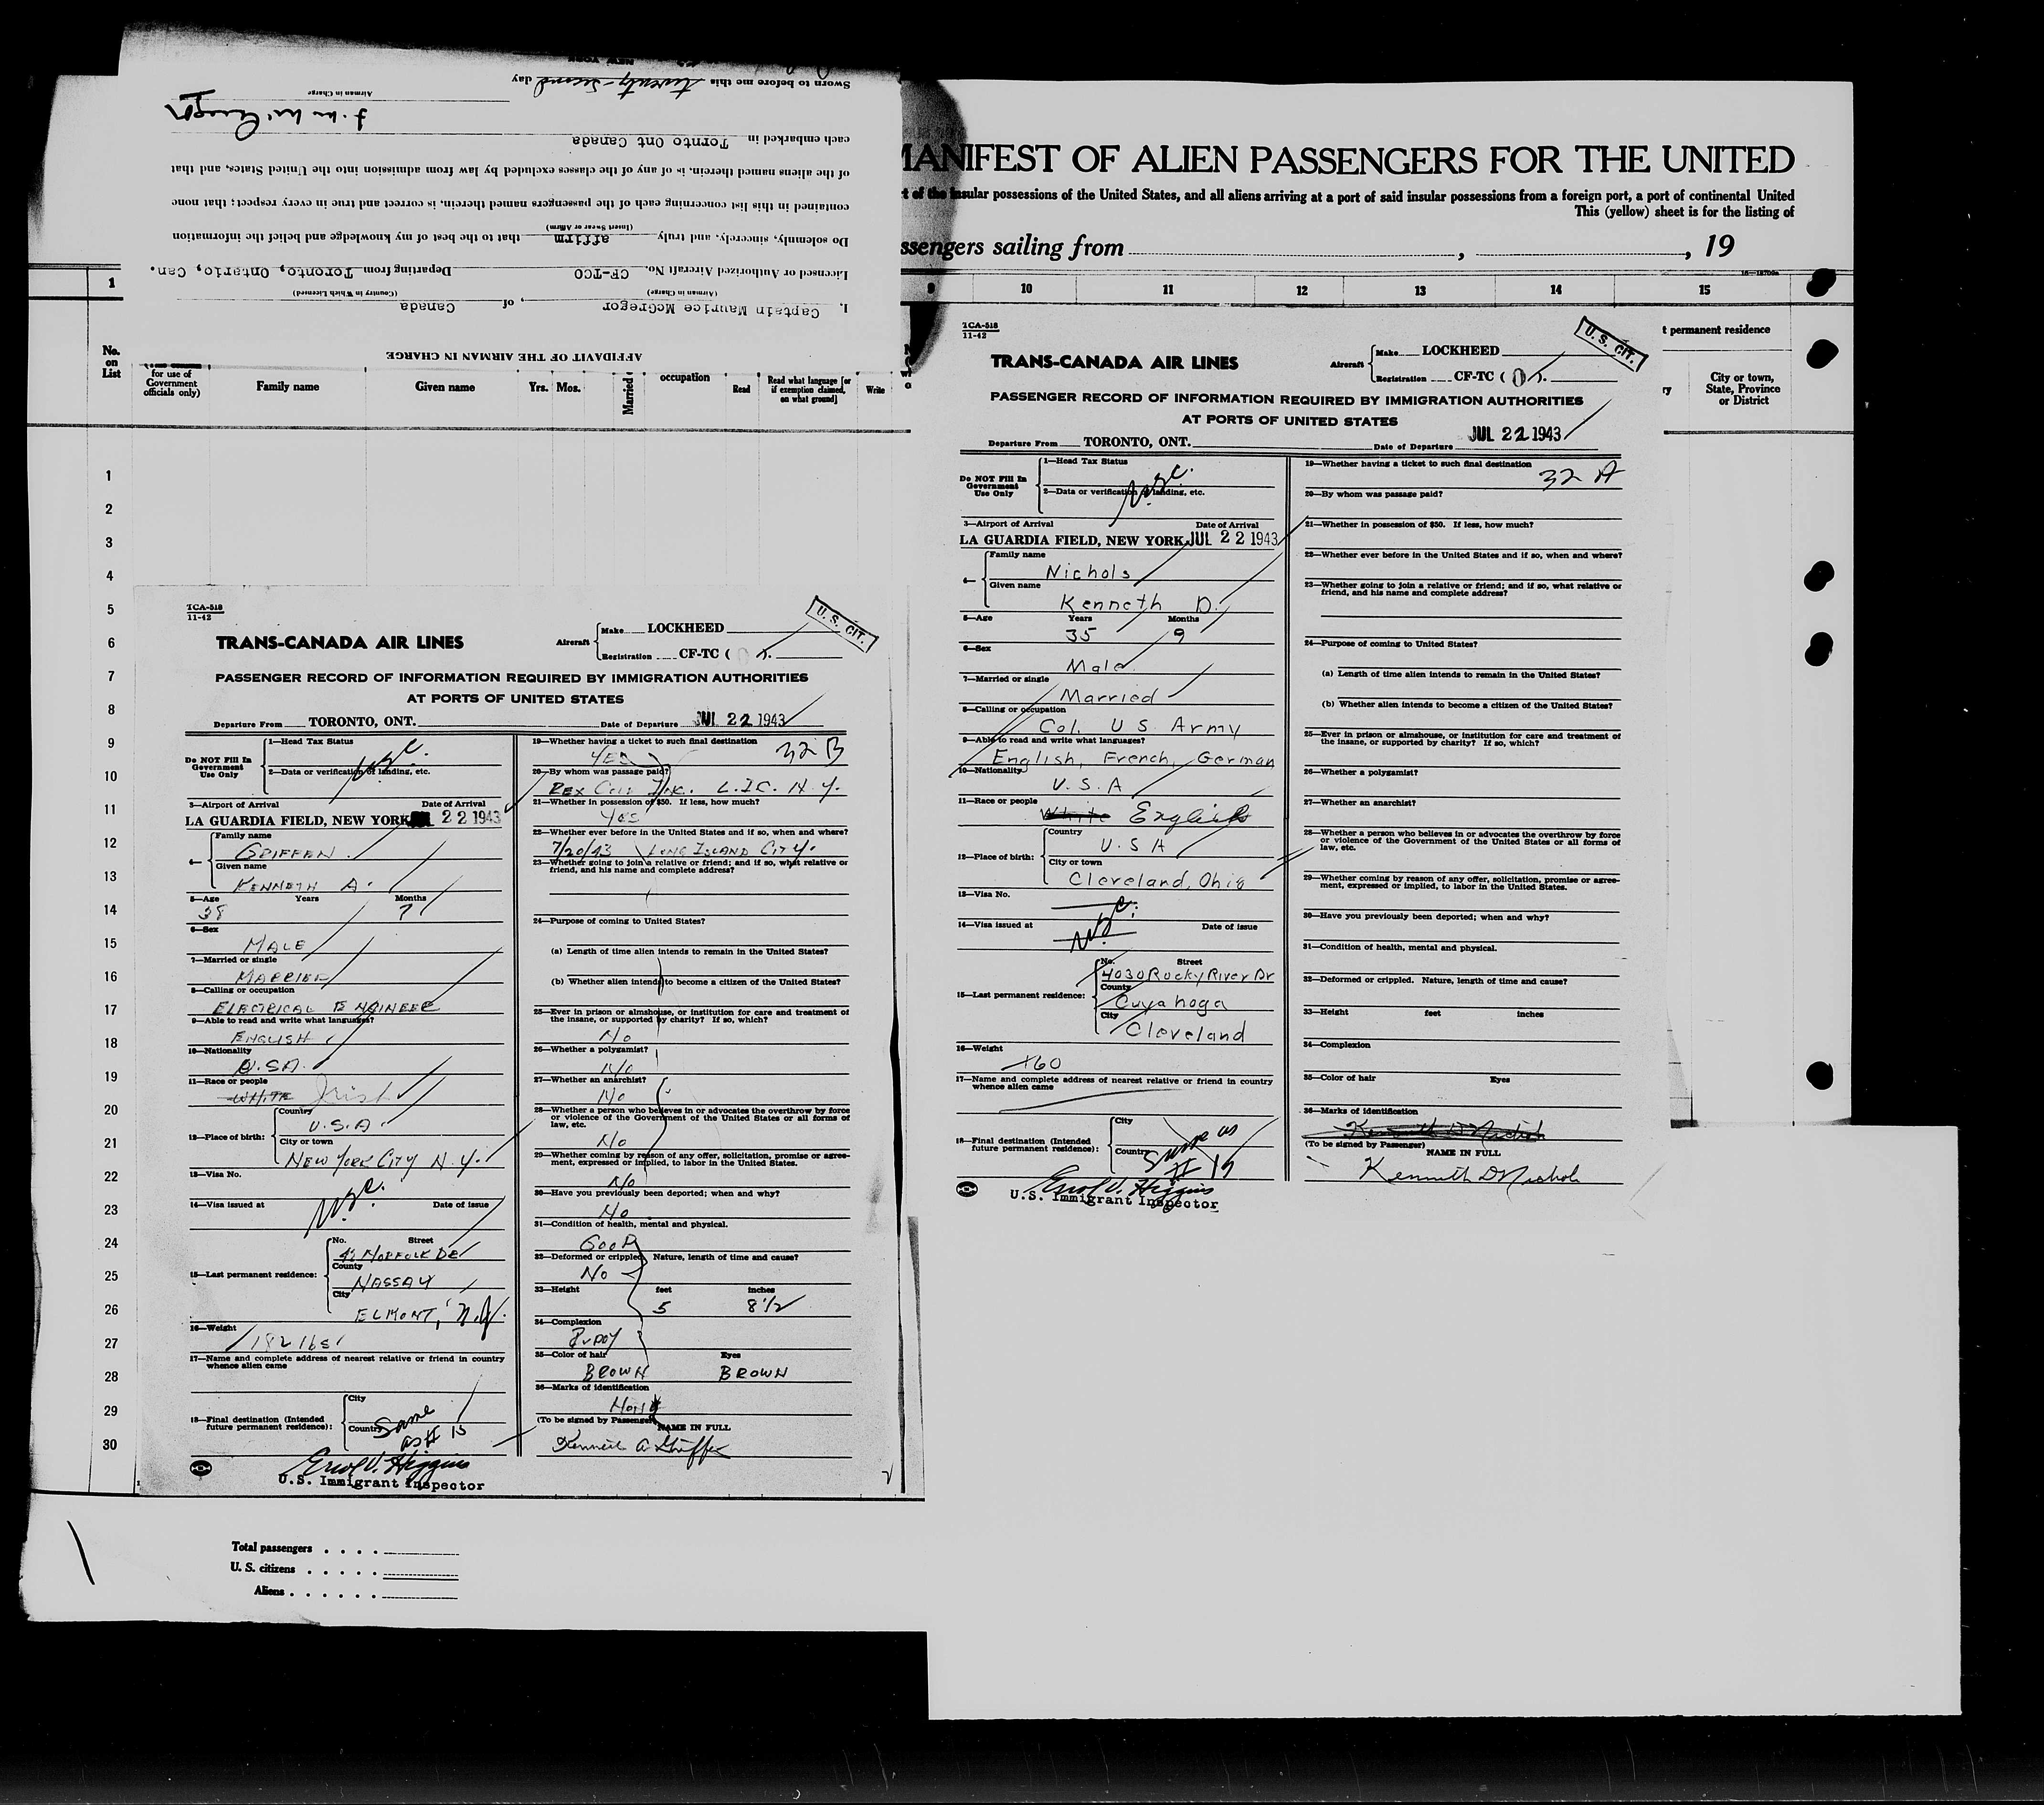 MANIFEST OF ALIEN PASSENGERS FOR THE UNITED
insular possessions of the United States, and all aliens arriving at a port of said insular possessions from a foreign port, a port of continental United
This (yellow) sheet is for the listing of
sailing from , , 19
AFFIDAVIT OF THE AIRMAN IN CHARGE
I, Captain Maurice McGregor, of Canada
(Airman in Charge) (Country in Which Licensed)
Licensed or Authorized Aircraft No. CF-TCO Departing from Toronto, Ontario, Can.
Do solemnly, sincerely, and truly affirm that to the best of my knowledge and belief the information
(Insert Swear or Affirm)
contained in this list concerning each of the passengers named therein, is correct and true in every respect; that none
of the aliens named therein, is of any of the classes excluded by law from admission into the United States, and that
each embarked in Tornto Ont Canada
Airman in Charge
Sworn to before me this twenty-second day
1
No. on List
for use of Government officials only)
Family name
Given name
Yrs. Mos.
Married
occupation
Read
Read what language [or if exemption claimed, on what ground]
Write
9 10 11 12 13 14 15
permanent residence
City or town, State, Province or District
1
2
3
4
5
6
7
8
9
10
11
12
13
14
15
16
17
18
19
20
21
22
23
24
25
26
27
28
29
30
TCA-518
11-42
TRANS-CANADA AIR LINES
Aircraft
Make LOCKHEED
Registration CF-TC ( ).
U. S. CIT.
PASSENGER RECORD OF INFORMATION REQUIRED BY IMMIGRATION AUTHORITIES
AT PORTS OF UNITED STATES
Departure From TORONTO, ONT. Date of Departure JUL 22 1943
Do NOT Fill In Government Use Only
1—Head Tax Status
2—Data or verification of landing, etc.
3—Airport of Arrival Date of Arrival
LA GUARDIA FIELD, NEW YORK 22 1943
4—
Family name
GRIFFEN
Given name
KENNETH A.
5—Age Years Months
38 7
6—Sex
MALE
7—Married or single
MARRIED
8—Calling or occupation
ELECTRICAL ENGINEER
9—Able to read and write what languages?
ENGLISH
10—Nationality
U.S.A.
11—Race or people
WHITE Irish
12—Place of birth:
Country
U.S.A.
City or town
NEW YORK CITY N.Y.
13—Visa No.
14—Visa issued at Date of issue
15—Last permanent residence:
No. Street
42 NORFOLK DR
County
NASSAU
City
ELMONT, N.Y.
16—Weight
182 lbs
17—Name and complete address of nearest relative or friend in country whence alien came
18—Final destination (Intended future permanent residence):
City
Country
Same as # 15
Errol V. Higgins
U.S. Immigrant Inspector
19—Whether having a ticket to such final destination
YES 32 B
20—By whom was passage paid?
REX L.I.C. N.Y.
21—Whether in possession of $50. If less, how much?
YES
22—Whether ever before in the United States and if so, when and where?
7/20/43 LONG ISLAND CITY.
23—Whether going to join a relative or friend; and if so, what relative or friend, and his name and complete address?
24—Purpose of coming to United States?
(a) Length of time alien intends to remain in the United States?
(b) Whether alien intends to become a citizen of the United States?
25—Ever in prison or almshouse, or institution for care and treatment of the insane, or supported by charity? If so, which?
No
26—Whether a polygamist?
No
27—Whether an anarchist?
No
28—Whether a person who believes in or advocates the overthrow by force or violence of the Government of the United States or all forms of law, etc.
No
29—Whether coming by reason of any offer, solicitation, promise or agreement, expressed or implied, to labor in the United States.
No
30—Have you previously been deported; when and why?
No
31—Condition of health, mental and physical.
GOOD
32—Deformed or crippled. Nature, length of time and cause?
No
33—Height feet inches
5 8 1/2
34—Complexion
RUDDY
35—Color of hair Eyes
BROWN BROWN
36—Marks of identification
None
(To be signed by Passenger) NAME IN FULL
Total passengers
U. S. citizens
Aliens
TCA-518
11-42
TRANS-CANADA AIR LINES
Aircraft
Make LOCKHEED
Registration CF-TC ( O ).
U. S. CIT.
PASSENGER RECORD OF INFORMATION REQUIRED BY IMMIGRATION AUTHORITIES
AT PORTS OF UNITED STATES
Departure From TORONTO, ONT. Date of Departure JUL 22 1943
Do NOT Fill In Government Use Only
1—Head Tax Status
2—Data or verification of landing, etc.
3—Airport of Arrival Date of Arrival
LA GUARDIA FIELD, NEW YORK JUL 22 1943
4—
Family name
Nichols
Given name
Kenneth D.
5—Age Years Months
35 9
6—Sex
Male
7—Married or single
Married
8—Calling or occupation
Col. U S Army
9—Able to read and write what languages?
English, French, German
10—Nationality
U.S.A
11—Race or people
White English
12—Place of birth:
Country
U.S A
City or town
Cleveland, Ohio
13—Visa No.
14—Visa issued at Date of issue
15—Last permanent residence:
No. Street
4030 Rocky River Dr
County
Cuyahoga
City
Cleveland
16—Weight
160
17—Name and complete address of nearest relative or friend in country whence alien came
18—Final destination (Intended future permanent residence):
City
Country
Same as # 15
Errol V. Higgins
U.S. Immigrant Inspector
19—Whether having a ticket to such final destination
32 A
20—By whom was passage paid?
21—Whether in possession of $50. If less, how much?
22—Whether ever before in the United States and if so, when and where?
23—Whether going to join a relative or friend; and if so, what relative or friend, and his name and complete address?
24—Purpose of coming to United States?
(a) Length of time alien intends to remain in the United States?
(b) Whether alien intends to become a citizen of the United States?
25—Ever in prison or almshouse, or institution for care and treatment of the insane, or supported by charity? If so, which?
26—Whether a polygamist?
27—Whether an anarchist?
28—Whether a person who believes in or advocates the overthrow by force or violence of the Government of the United States or all forms of law, etc.
29—Whether coming by reason of any offer, solicitation, promise or agreement, expressed or implied, to labor in the United States.
30—Have you previously been deported; when and why?
31—Condition of health, mental and physical.
32—Deformed or crippled. Nature, length of time and cause?
33—Height feet inches
34—Complexion
35—Color of hair Eyes
36—Marks of identification
Kenneth D Nichols
(To be signed by Passenger) NAME IN FULL
Kenneth D Nichols